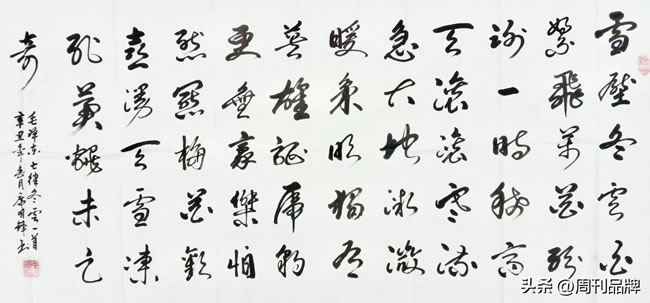 雪壓冬雲白
絮飛萬花紛
謝一時稀高
天滾滾寒流
急大地微微
暖氣吹獨有
英雄驅虎豹
更無豪傑怕
熊羆梅花歡
喜漫天雪凍
死蒼蠅未足
奇
毛澤東七律冬雲一首
辛丑年春月書
头条 @周刊品牌